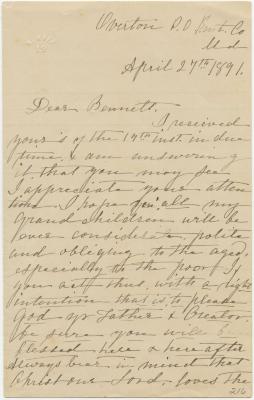 Overton P.O Kent. Co
Md
April 27th 1891.
Dear Bennett.
I received
yours of the 17th inst. in due
time. & am answering
it, that you may see
I appreciate your atten
tions. I hope you all my
Grand children will be
ever considerate, polite
and obliging to the aged,
especially to the poor. If
you act thus, with a right
intention that is to please
God yr Father & Creator.
be sure you will be
blessed here & hereafter
Always bear in mind that
Christ our Lord, loves the
216